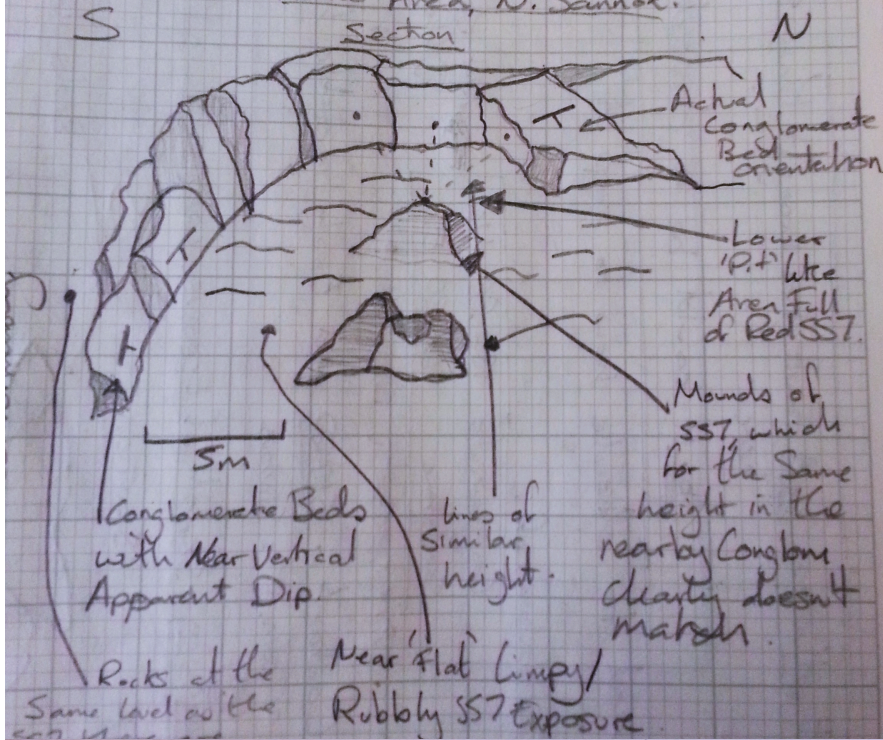 Area, N. Sannox.
Section
S
N
Actual
Conglomerate
Bed
orientation
Lower
'Pit' like
Area Full
of Red SST.
Mounds of
SST, which
for the Same
height in the
nearby Conglom
clearly doesn't
match.
5m
Conglomerate Beds
with Near Vertical
Apparent Dip.
lines of
Similar
height.
Near 'Flat' Lumpy/
Rubbly SST Exposure.
Rocks at the
Same level as the